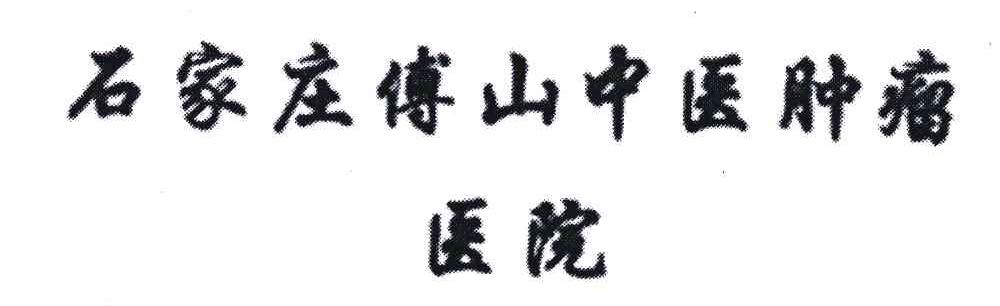 石家庄傅山中医肿瘤
医院